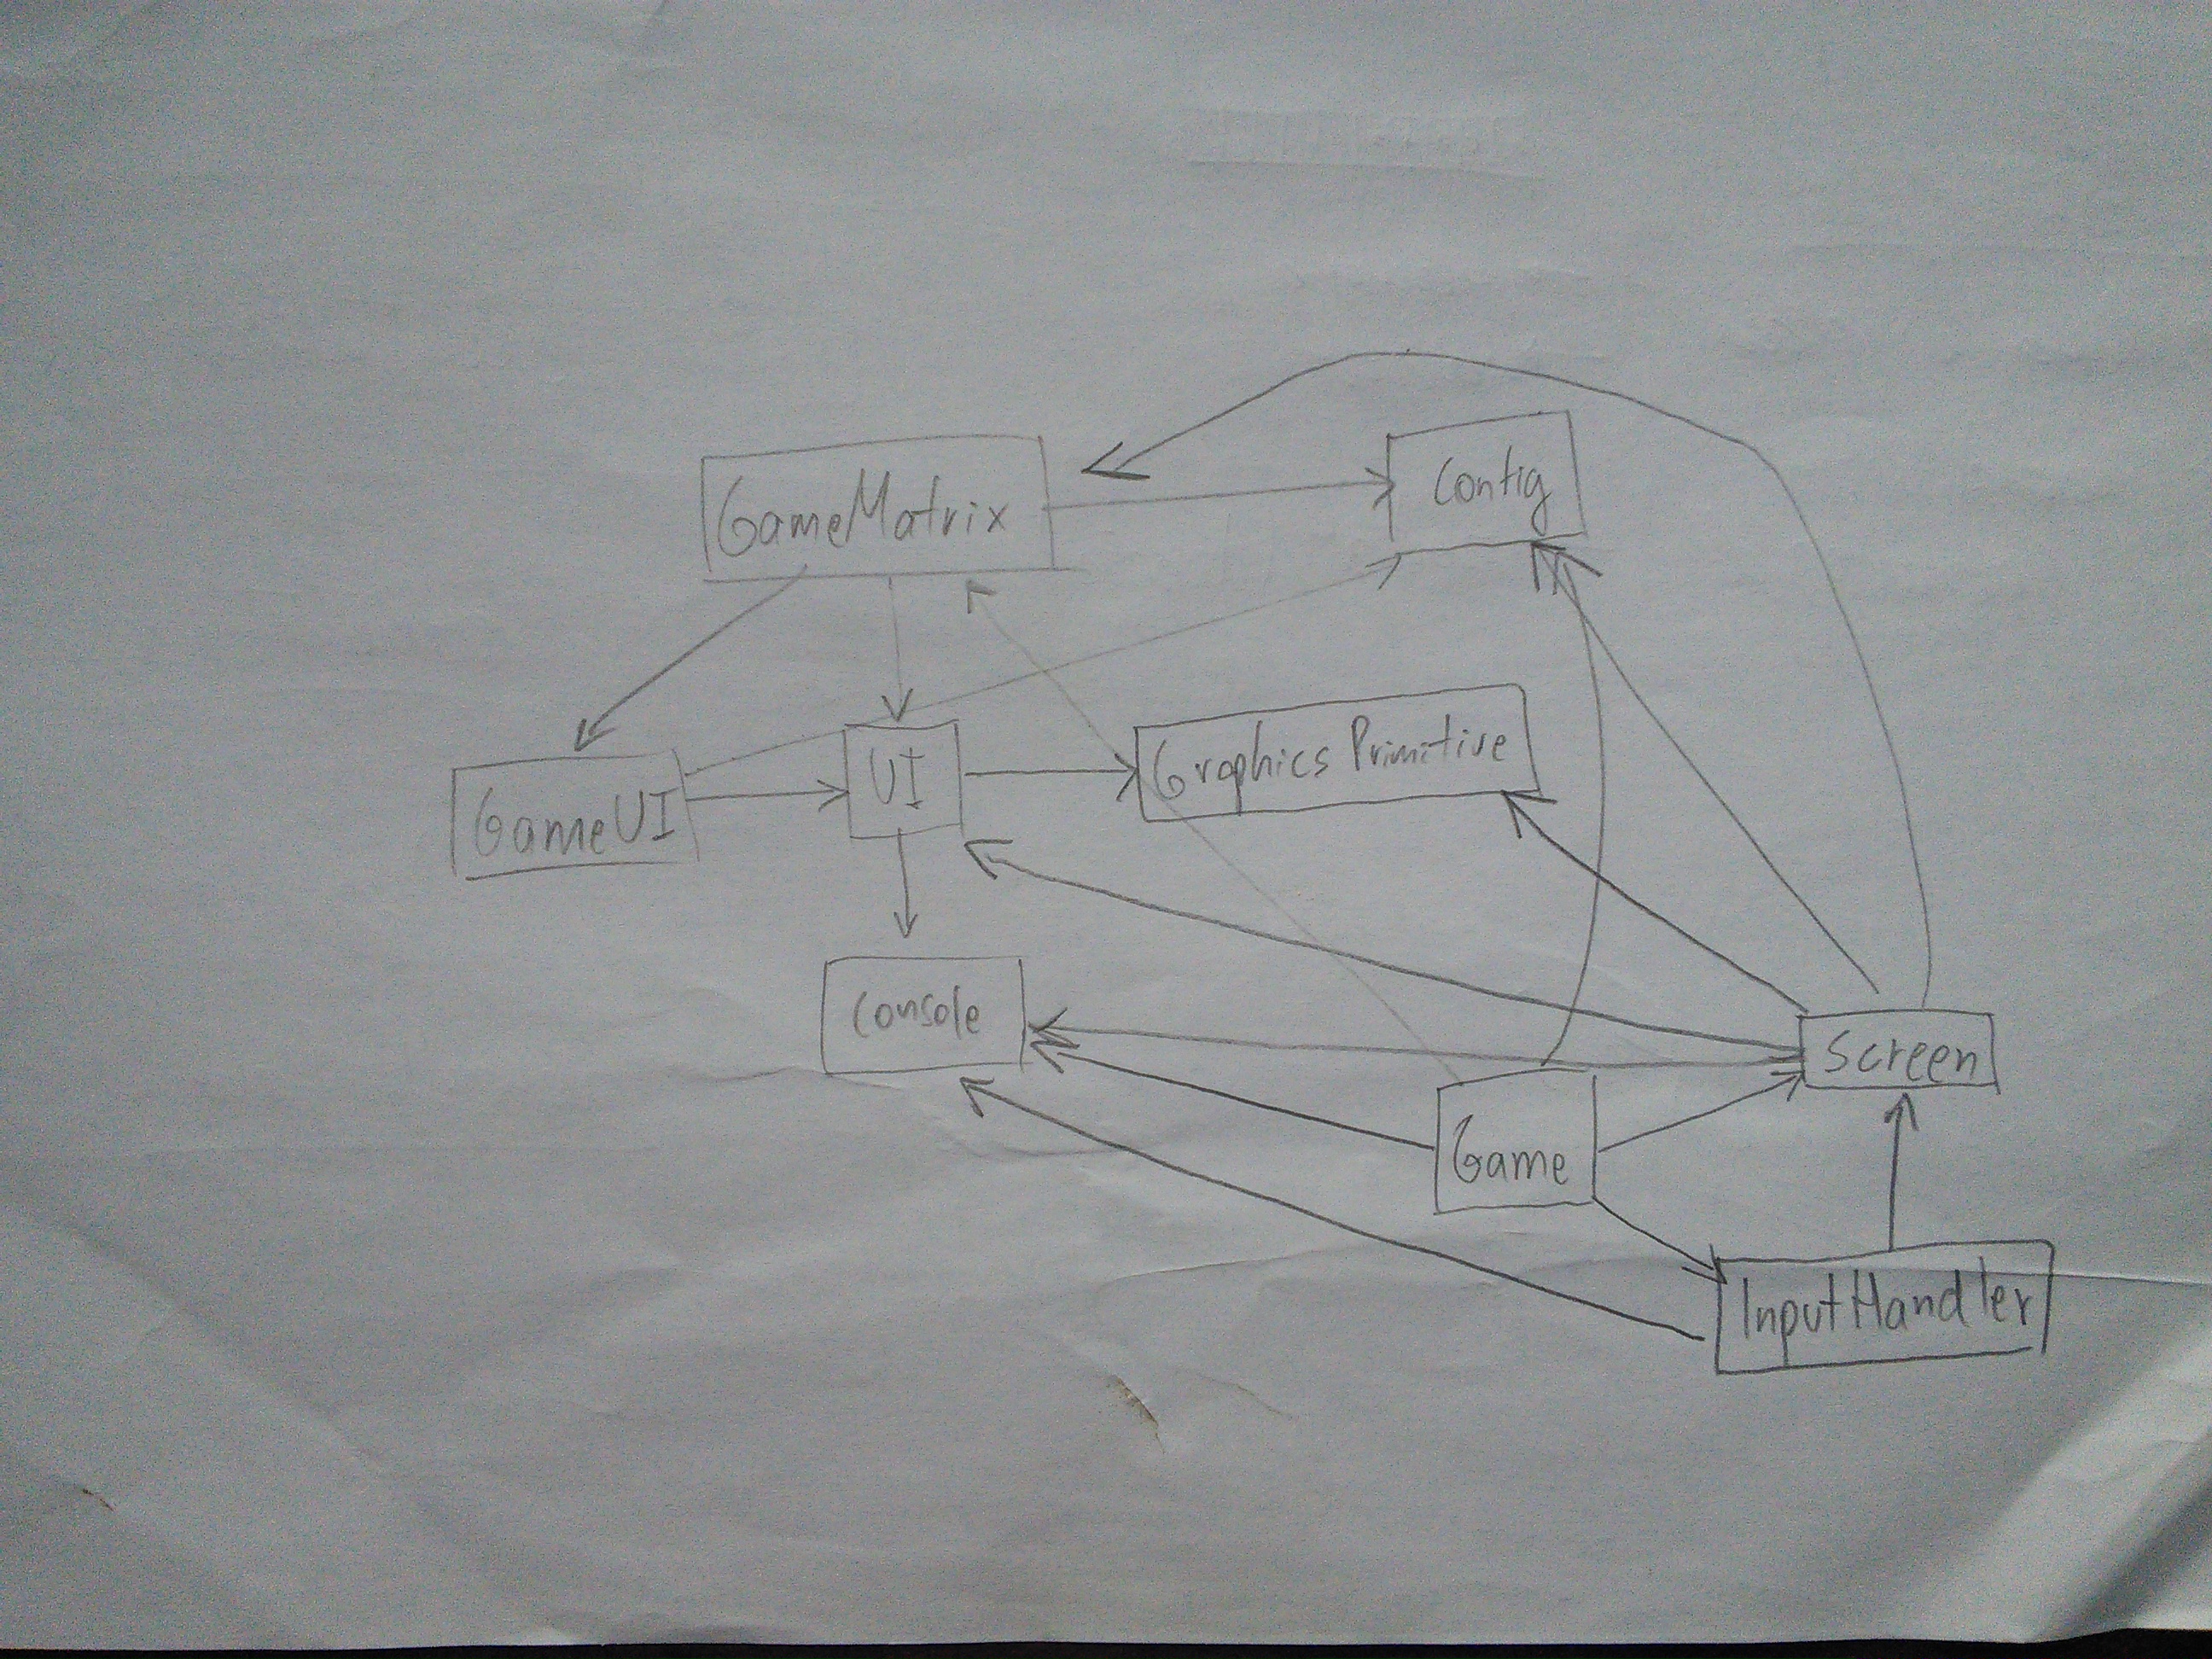 GameMatrix
Config
GameUI
UI
Graphics Primitive
Console
Screen
Game
InputHandler